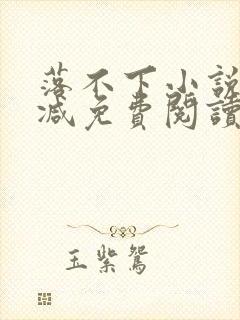 落不下小說
減免費閱讀
玉紫鴛